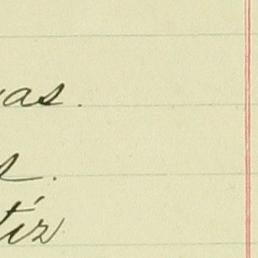 as.
s.
tíz